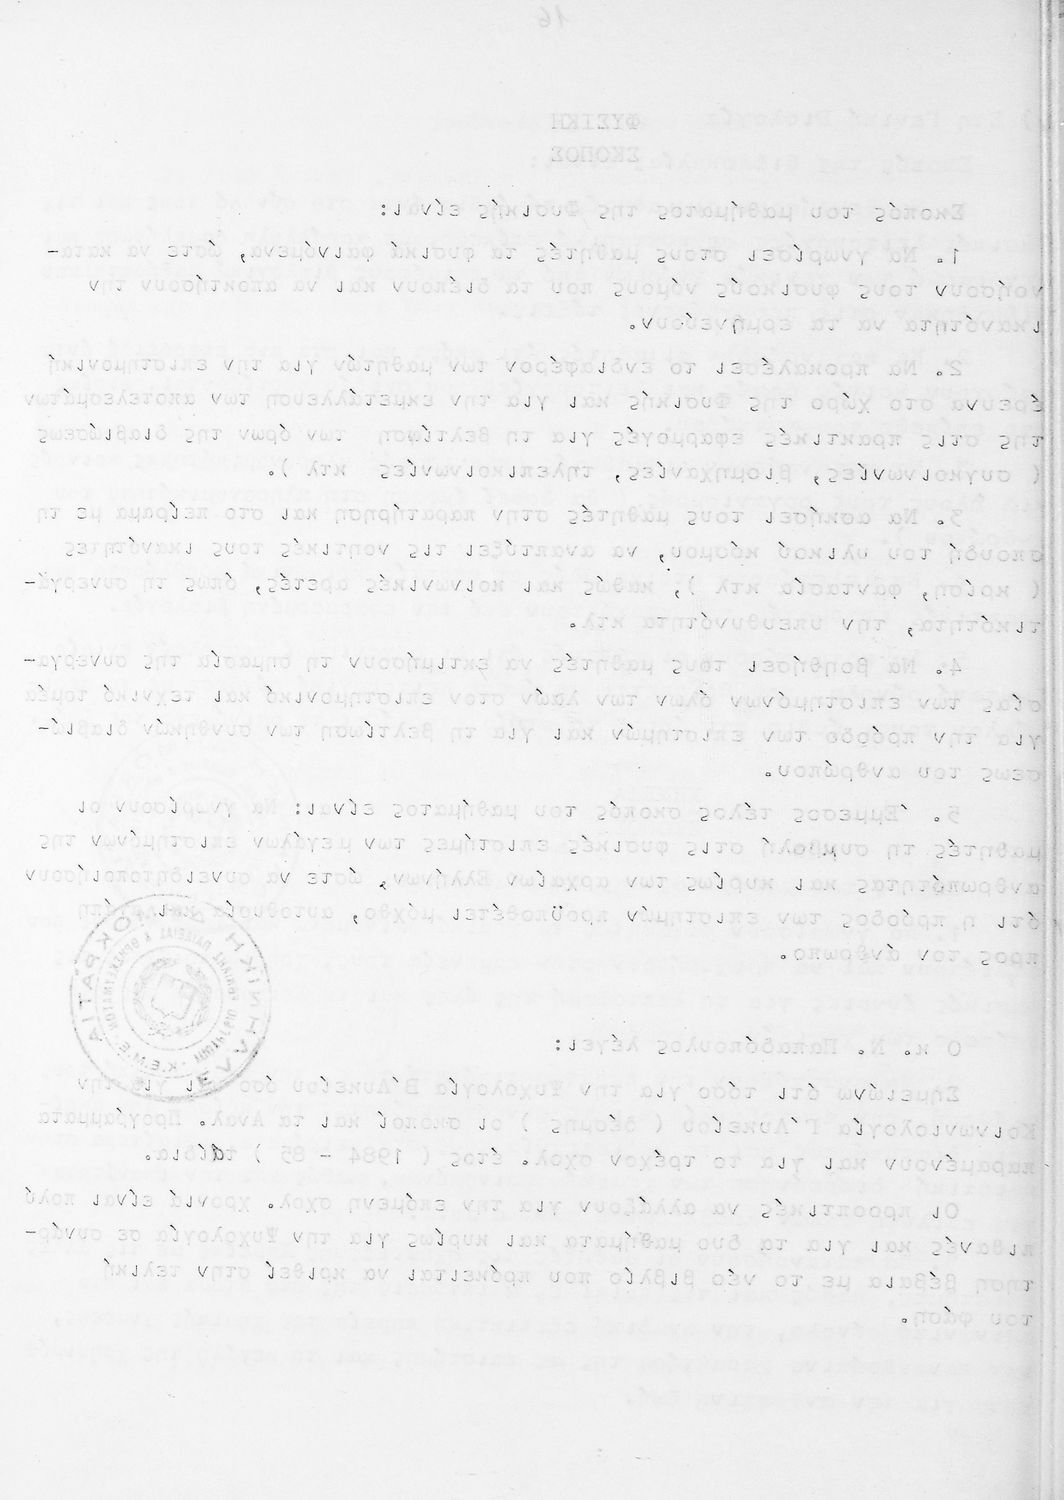 16
ΦΥΣΙΚΗ
ΣΚΟΠΟΣ
Σκοπός του μαθήματος της Φυσικής είναι:
1. Να γνωρίσει στους μαθητές τα φυσικά φαινόμενα, ώστε να κατα-
νοήσουν τους φυσικούς νόμους που τα διέπουν και να αποκτήσουν την
ικανότητα να τα ερμηνεύουν.
2. Να προκαλέσει το ενδιαφέρον των μαθητών για την επιστημονική
έρευνα στο χώρο της Φυσικής και για την εκμετάλλευση των αποτελεσμάτων
της στις πρακτικές εφαρμογές για τη βελτίωση των όρων της διαβιώσεως
( συγκοινωνίες, βιομηχανίες, τηλεπικοινωνίες κτλ ).
3. Να ασκήσει τους μαθητές στην παρατήρηση και στο πείραμα με τη
σπουδή του υλικού κόσμου, να αναπτύξει τις νοητικές τους ικανότητες
( κρίση, φαντασία κτλ ); καθώς και κοινωνικές αρετές, όπως τη συνεργά-
τικότητα, την υπευθυνότητα κτλ.
4. Να βοηθήσει τους μαθητές να εκτιμήσουν τη σημασία της συνεργα-
σίας των επιστημόνων όλων των λαών στον επιστημονικό και τεχνικό τομέα
για την πρόοδο των επιστημών και για τη βελτίωση των συνθηκών διαβιώ-
σεως του ανθρώπου.
5. Έμμεσος τέλος σκοπός του μαθήματος είναι: Να γνωρίσουν οι
μαθητές τη συμβολή στις φυσικές επιστήμες των μεγάλων επιστημόνων της
ανθρωπότητας και κυρίως των αρχαίων Ελλήνων, ώστε να συνειδητοποιήσουν
ότι η πρόοδος των επιστημών προϋποθέτει μόχθο, αυτοθυσία
προς τον άνθρωπο.
ΕΛΛΗΝΙΚΗ ΔΗΜΟΚΡΑΤΙΑ
Κ.Ε.Μ.Ε.
Ο κ. Ν. Παπαδόπουλος λέγει:
Σημειώνω ότι τόσο για την Ψυχολογία Β΄Λυκείου όσο και για την
Κοινωνιολογία Γ΄Λυκείου ( δέσμης ) οι σκοποί και τα Αναλ. Προγράμματα
παραμένουν και για το τρέχον σχολ. έτος ( 1984 - 85 ) τα ίδια.
Οι προοπτικές να αλλάξουν για την επόμενη σχολ. χρονιά είναι πολύ
πιθανές και για τα δυο μαθήματα και κυρίως για την Ψυχολογία σε συνάρ-
τηση βέβαια με το νέο βιβλίο που πρόκειται να κριθεί στην τελική
του φάση.